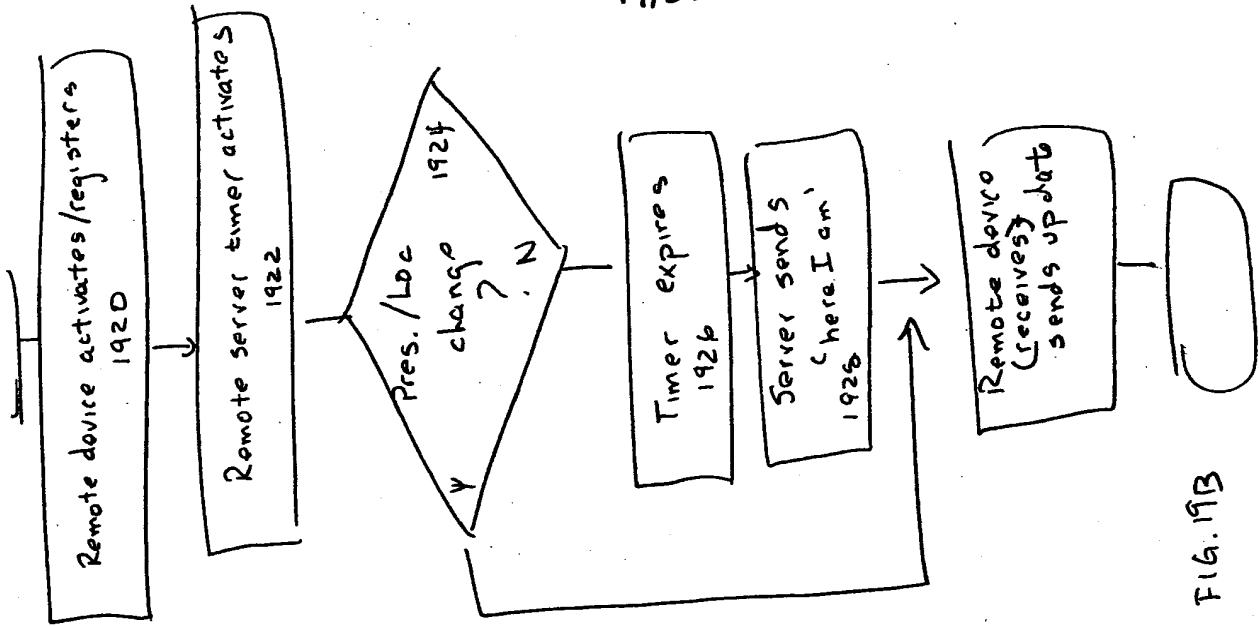 Remote device activates/registers
1920
Remote server timer activates
1922
Pres./Loc
change
?
1924
Y
N
Timer expires
1926
Server sends
'here I am'
1928
Remote device
(receives)
sends update
FIG. 19B